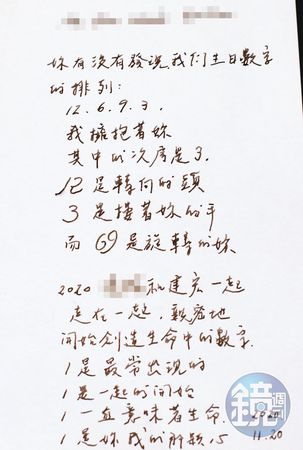 妳有沒有發現我們生日數字
的排列:
12.6.9.3.
我擁抱著妳
其中的次序是了.
12是轉向的頭
3是摟著妳的手
而69是旋轉的妳
2020 和建宏一起
走在一起,親密地
開始創造生命中的數字.
1是最常出現的
1是一起的開始
1一直意味著生命.
1是妳我的解題,
11.20
鏡週刊